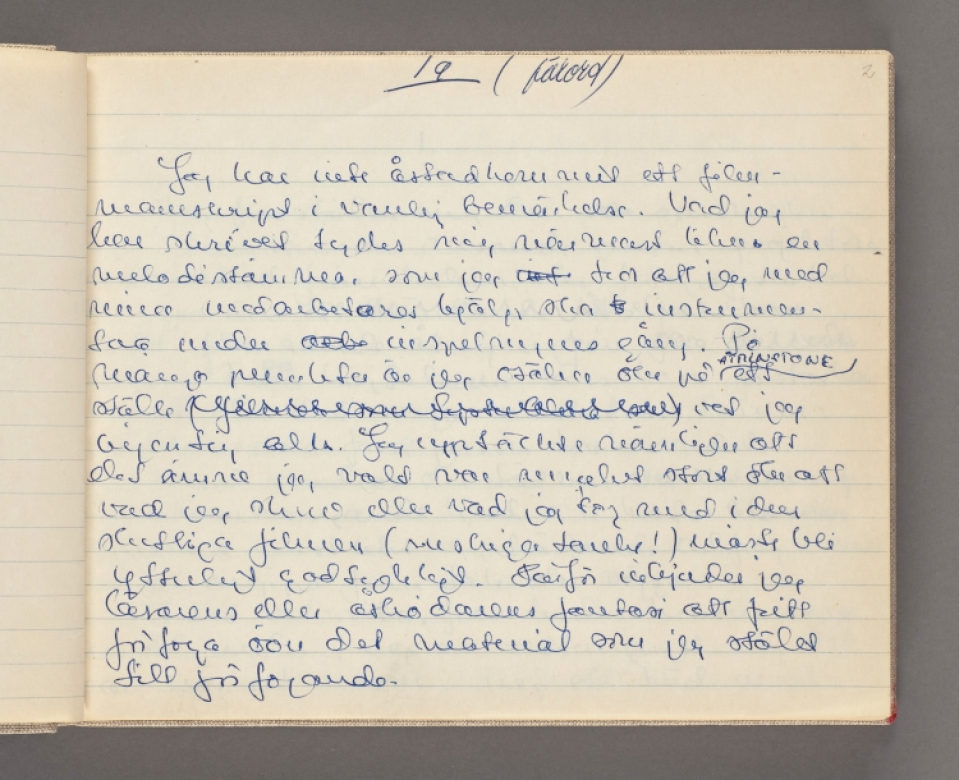 1a (förord)
2
Jag har inte åstadkommit ett film-
manuskript i vanlig bemärkelse. Vad jag
har skrivet tycks mig närmast likna en
melodistämma, som jag tror att jag med
mina medarbetares hjälp ska instrumen-
tera under inspelningens gång. På
ÅTMINSTONE
många punkter är jag osäker och på ett
ställe vet jag
ingenting alls. Jag upptäckte nämligen att
det ämne jag valt var mycket stort och att
vad jag skrev eller vad jag tog med i den
slutliga filmen (ruskiga tanke!) måste bli
ytterligt godtyckligt. Därför inbjuder jag
läsarens eller åskådarens fantasi att fritt
förfoga över det material som jag ställt
till förfogande.